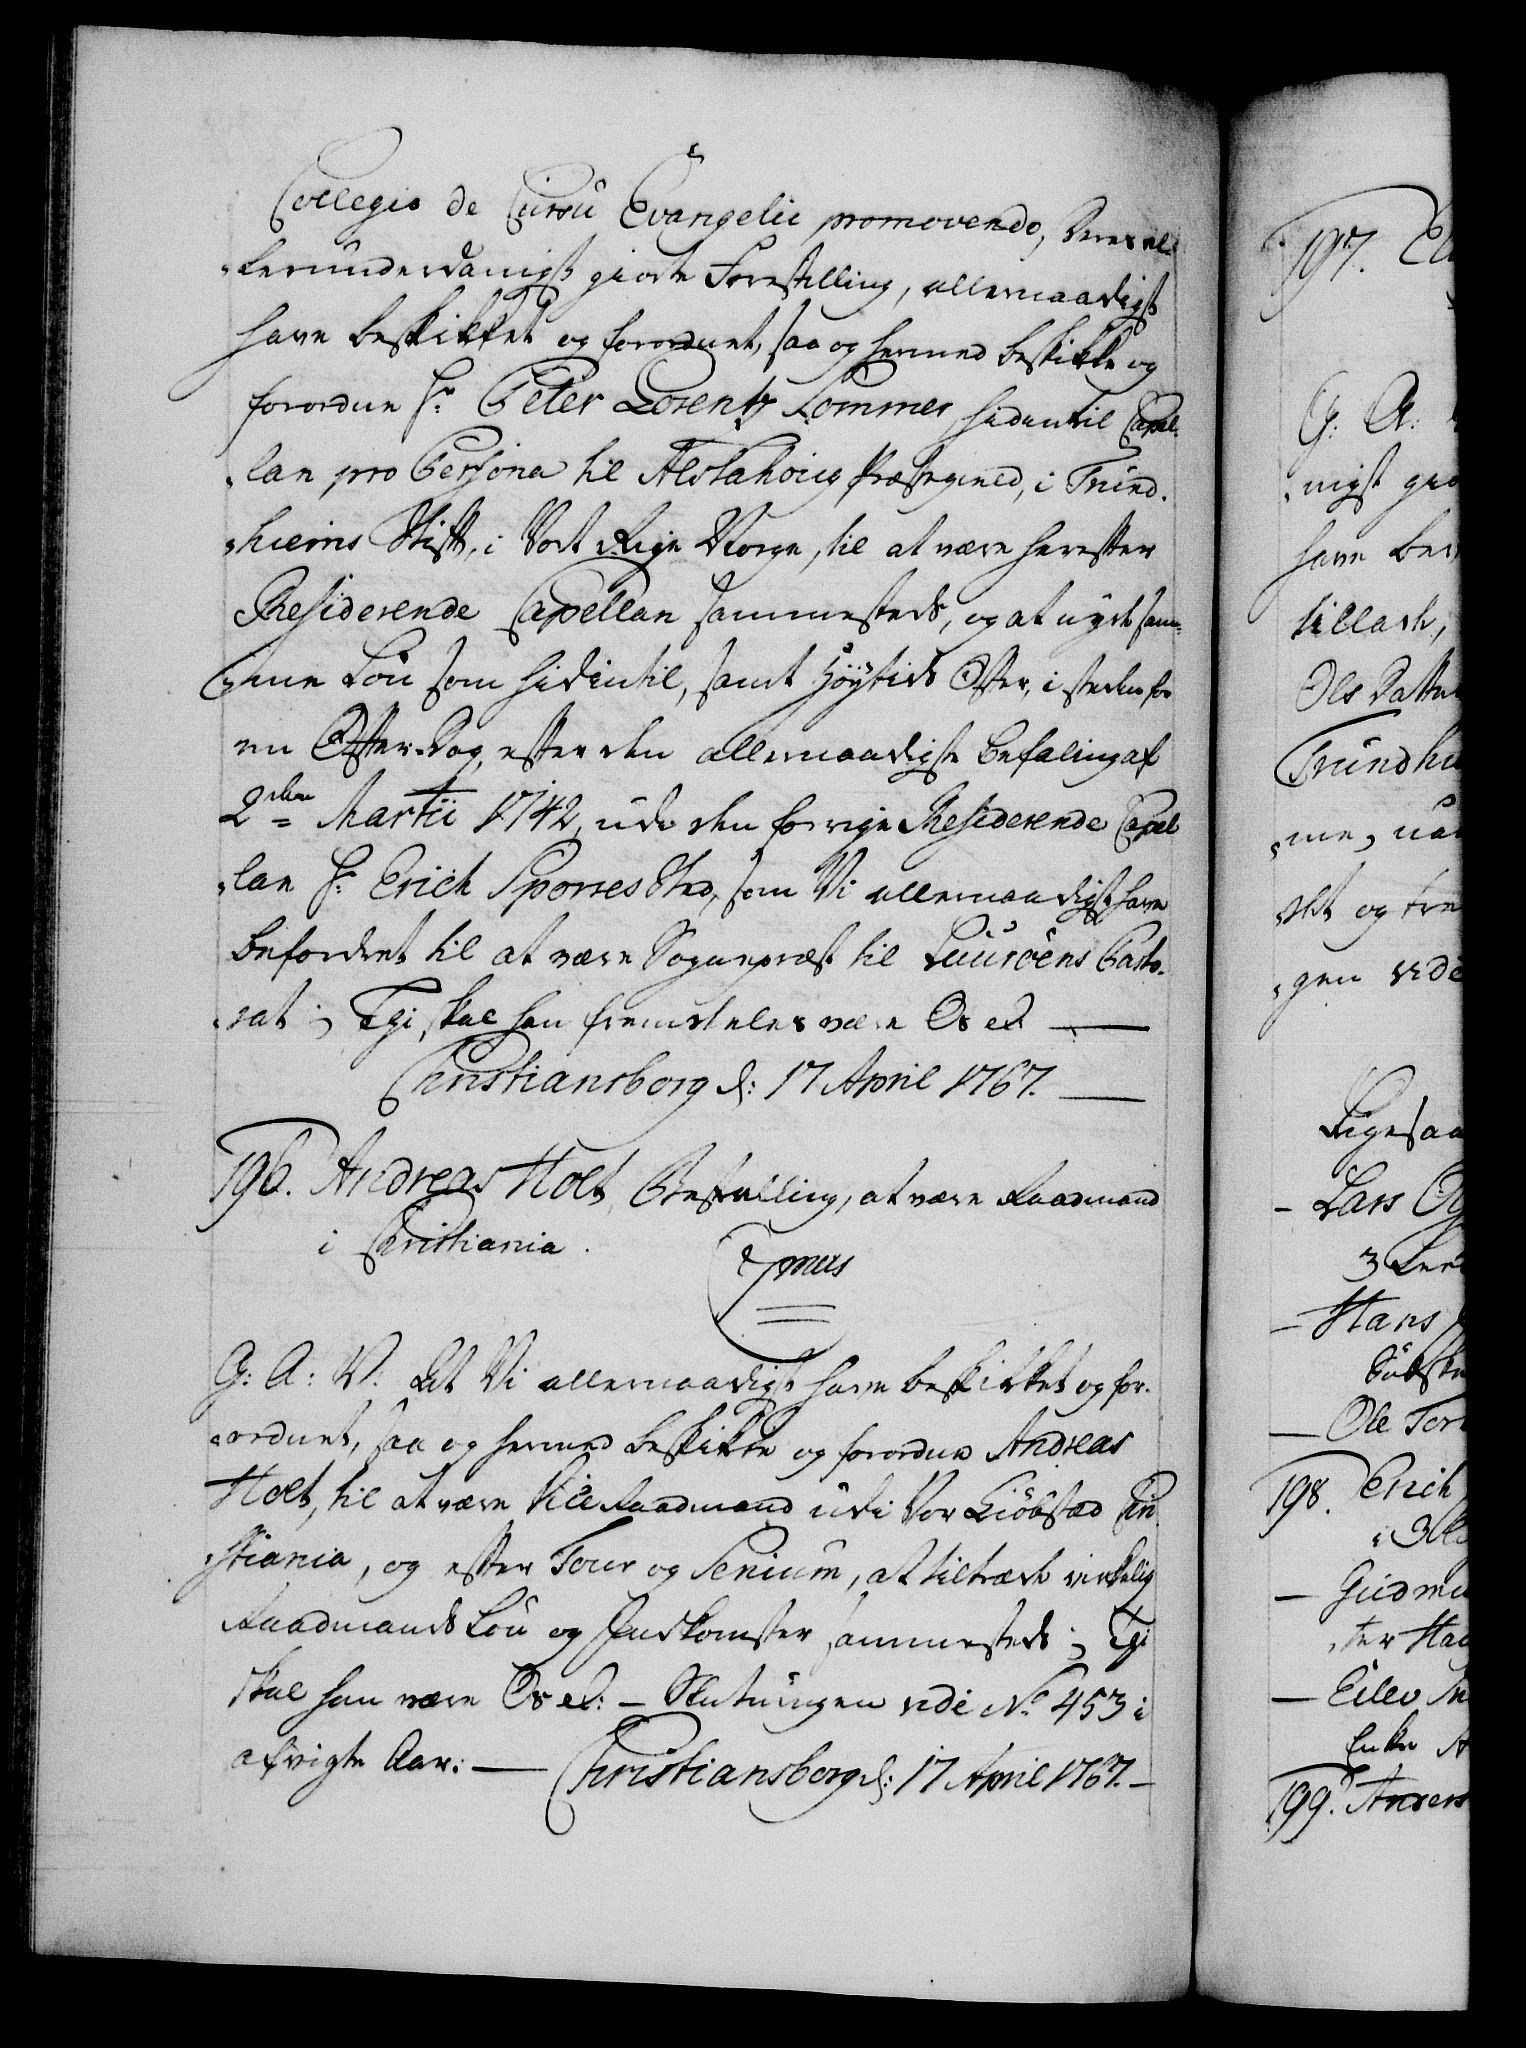 Collegio de Cursu Evangelii promovendo, deres al-
lerunderdanigst giorte Forestilling, allernaadigst
have beskikket og forordnet, saa og hermed beskikke og
forordne Hr. Peter Lorentz Sommer, hidentil Capel-
lan pro Persona til Alstahoug Præstegield, i Trund-
hiems Stift, i Vort Rige Norge, til at være herefter
Residerende Capellan sammesteds, og at nyde sam-
me Løn som hidentil, samt Høytids Offer, i steden for
en Offer-Dag, efter den allernaadigste Befaling af
2den Martii 1742, udi den forrige Residerende Capel
lan Hr. Erich Sporres Sted, som Vi allernaadigst have
befordret til at være Sognepræst til Luurøens Pasto-
rat; Thi skal han fremdeles være Os ec.
Christiansborg d: 17 April 1767.
196. Andreas Holt, Bestalling, at være Raadmand
i Christiania.
G: A: V: At Vi allernaadigst have beskikket og for-
ordnet, saa og hermed beskikke og forordne Andreas
Holt, til at være Vice Raadmand udi Vor Kiøbstad Chri-
stiania, og efter Tour og Senium, at tiltræde virkelig
Raadmands Løn og Indkomster sammesteds; Thi
skal han være Os ec: – Slutningen vide No. 453 i
afvigte Aar: Christiansborg d: 17 April 1767. –
197.
G: A:
nigst gio
have
tillade,
Ols Datter
Trundhi
me,
det og tre
gen vide
Ligesaa
– Lars
3
– Hans
– Ole Tor
198. Erich
– Gudmu
ter
– Eilev
Enke
199. Anders